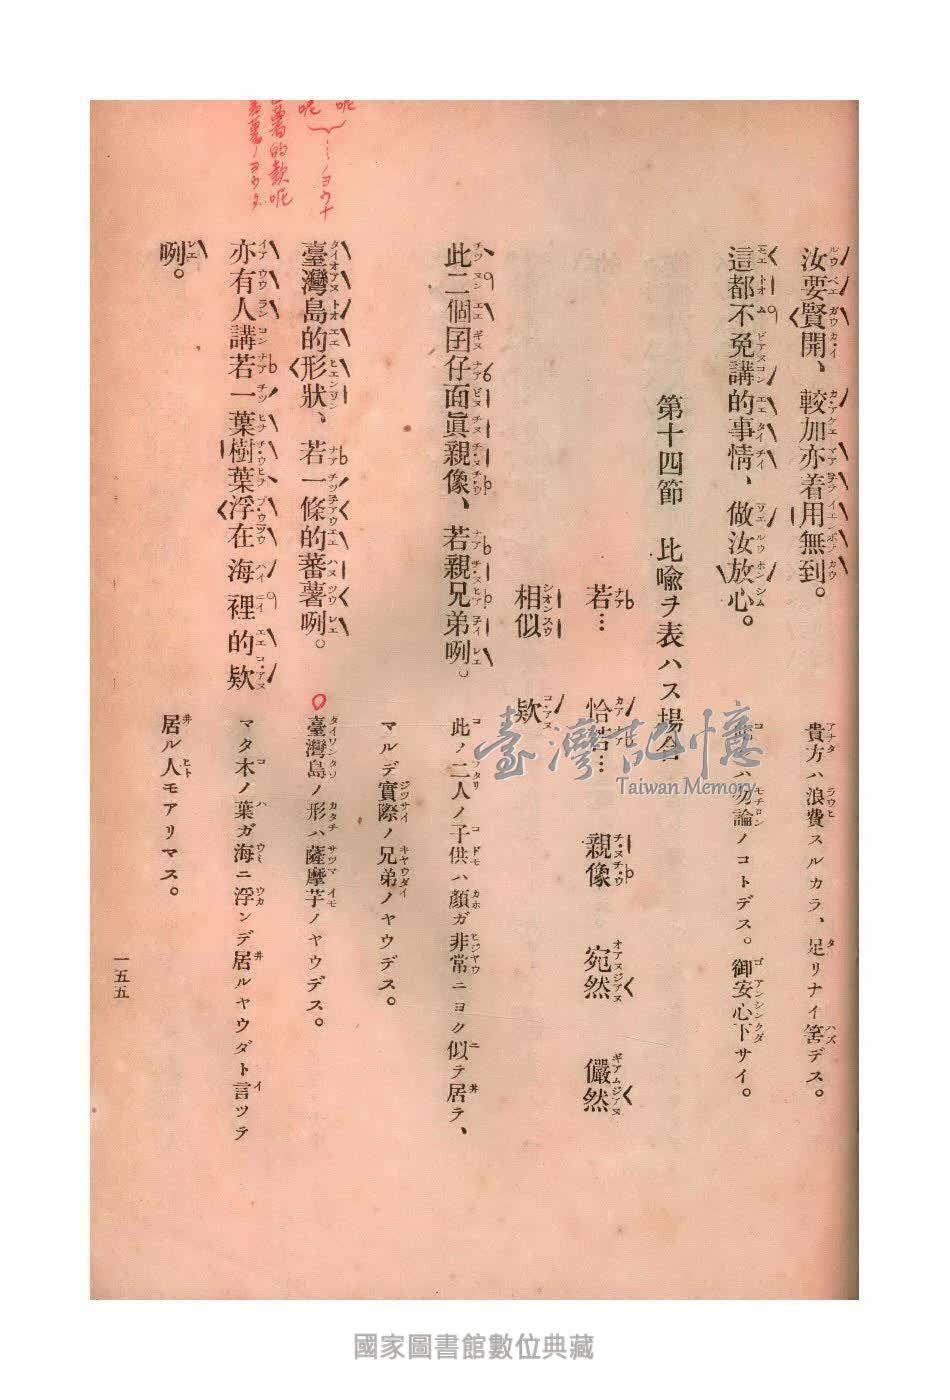 汝要賢開、較加亦着用無到。
貴方ハ浪費スルカラ、足リナイ筈デス。
這都不免講的事情、做汝放心。
ハ勿論ノコトデス。御安心下サイ。
第十四節 比喩ヲ表ハス場合
若… 恰若… 親像 宛然 儼然
相似 欵
此二個囝仔面眞親像、若親兄弟咧。
此ノ二人ノ子供ハ顔ガ非常ニヨク似テ居ラ、
マルデ實際ノ兄弟ノヤウデス。
臺灣島的形狀、若一條的蕃薯咧。
臺灣島ノ形ハ薩摩芋ノヤウデス。
亦有人講若一葉樹葉浮在海裡的欵
咧。
マタ木ノ葉ガ海ニ浮ンデ居ルヤウダト言ツテ
居ル人モアリマス。
一五五
呢
呢
…ノヨウナ
薯的欵呢
ノヨウダ
臺灣記憶
Taiwan Memory
國家圖書館數位典藏